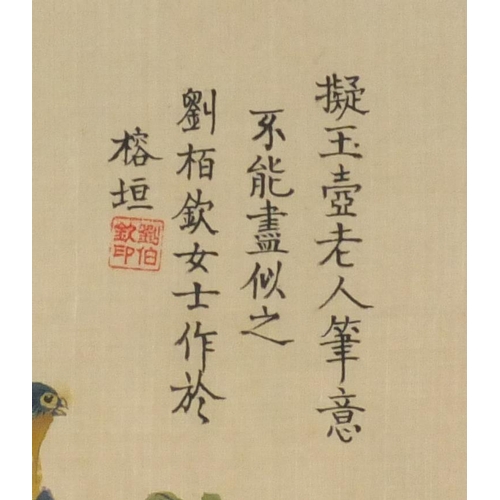 擬玉壺老人筆意
不能盡似之
劉栢欽女士作於
榕垣
劉伯
欽印